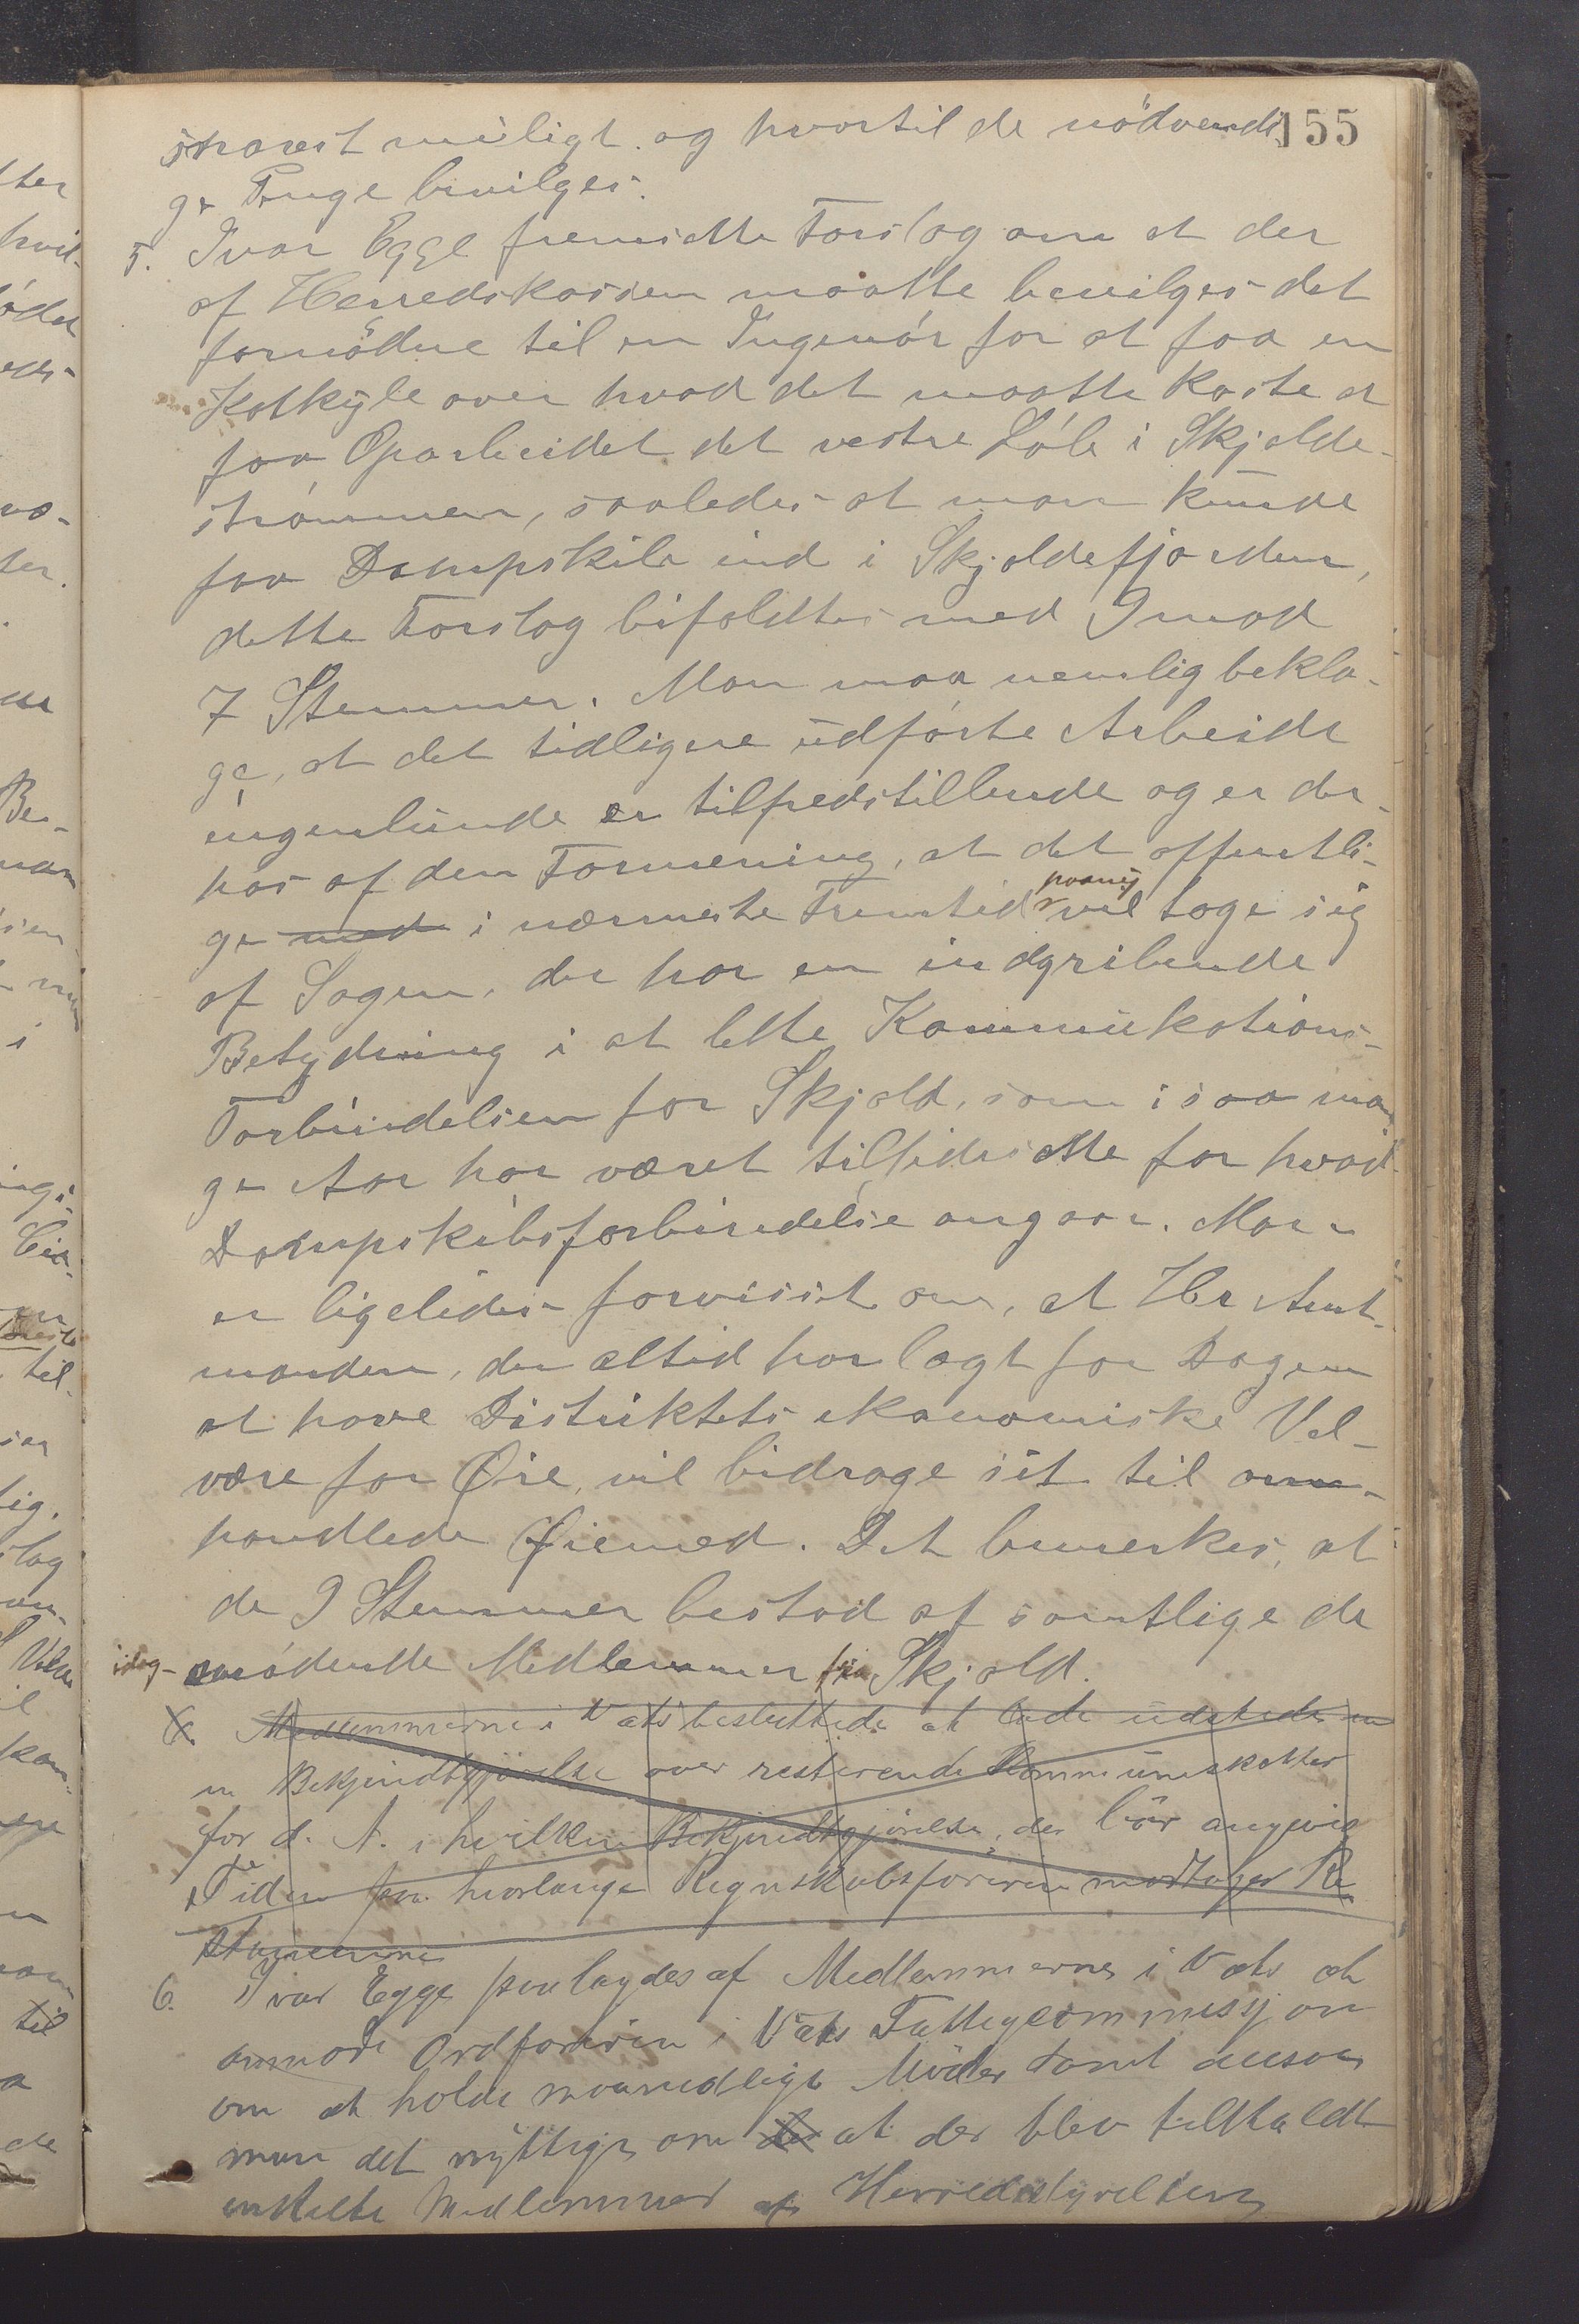 155
snarest muligt og hvortil de nödvendi
ge Penge bevilges.
5. Ivar Egge fremsatte Forslag om at der
af Herredskassen maatte bevilges det
fornödne til en Ingenör for at faa en
Kalkyle over hvad det maatte koste at
faa Oparbeidet det vestre Löb i Skjolde-
strömmen, saaledes at man kunde
faa Dampskibe ind i Skjoldefjorden,
dette Forslag bifaldtes med 9 mod
7 Stemmer. Man maa nemlig bekla-
ge, at det tidligere udförte Arbeide
ingenlunde er tilfredstillende og er der-
hos af den Formening, at det offentli-
ge med i nærmeste Fremtid paany vil tage sig
af Sagen, der har en indgribende
Betydning i at lette Kommukations-
Forbindelsen for Skjold, som i saa man
ge Aar har været tilsidesatte for hvad
Dampskibsforbindelse angaar. Man
er ligeledes forvisset om, at Hr Amt-
manden, der altid har lagt for Dagen
at have Distriktets ekonomiske Vel-
være for Øie, vil bidrage sit til om-
handlede Øiemed. Det bemerkes, at
de 9 Stemmer bestod af samtlige de
idag mödende Medlemmer fra Skjold.
6. Medlemmerne i Vats besluttede at lade udstede en
en Bekjendtgjörelse over resterende Kommuneskatter
for d. A. i hvilken Bekjendtgjörelse, der bör angives
Tiden for hvorlænge Regnskabsföreren modtager Re
stancerne
6. Ivar Egge paalagdes af Medlemmerne i Vats at
anmode Ordföreren i Vats Fattigcommissjon
om at holde maanedlige Möder samt ansaa
man det nyttigt om der at der blev tilkaldt
enkelte Medlemmer af Herredsstyrelsen